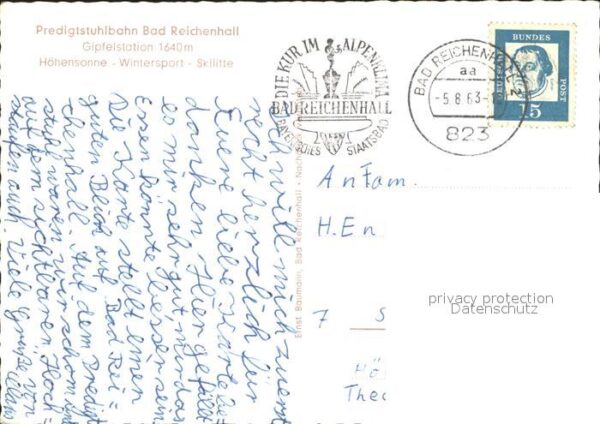 Predigtstuhlbahn Bad Reichenhall
Gipfelstation 1640m
Höhensonne - Wintersport - Skilifte
DIE KUR IM ALPENKLIMA
BAD REICHENHALL
BAYERISCHES STAATSBAD
BAD REICHENHALL 2
aa
-5.8.63-
823
DEUTSCHE BUNDES POST
15
Ernst Baumann, Bad Reichenhall
Ich will mich zuerst
recht herzlich für
Euere liebe Karte be-
danken. Hier gefällt
es mir sehr gut nur das
Essen könnte besser sein
Die Karte stellt einen
guten Blick auf Bad Rei=
chenhall. Auf dem Predigt
stuhl waren wir schon und
auf dem sichtbaren Hoch
staufen auch. Viele Grüße von
An Fam.
H. En
7 S
Hö
Theo
privacy protection
Datenschutz